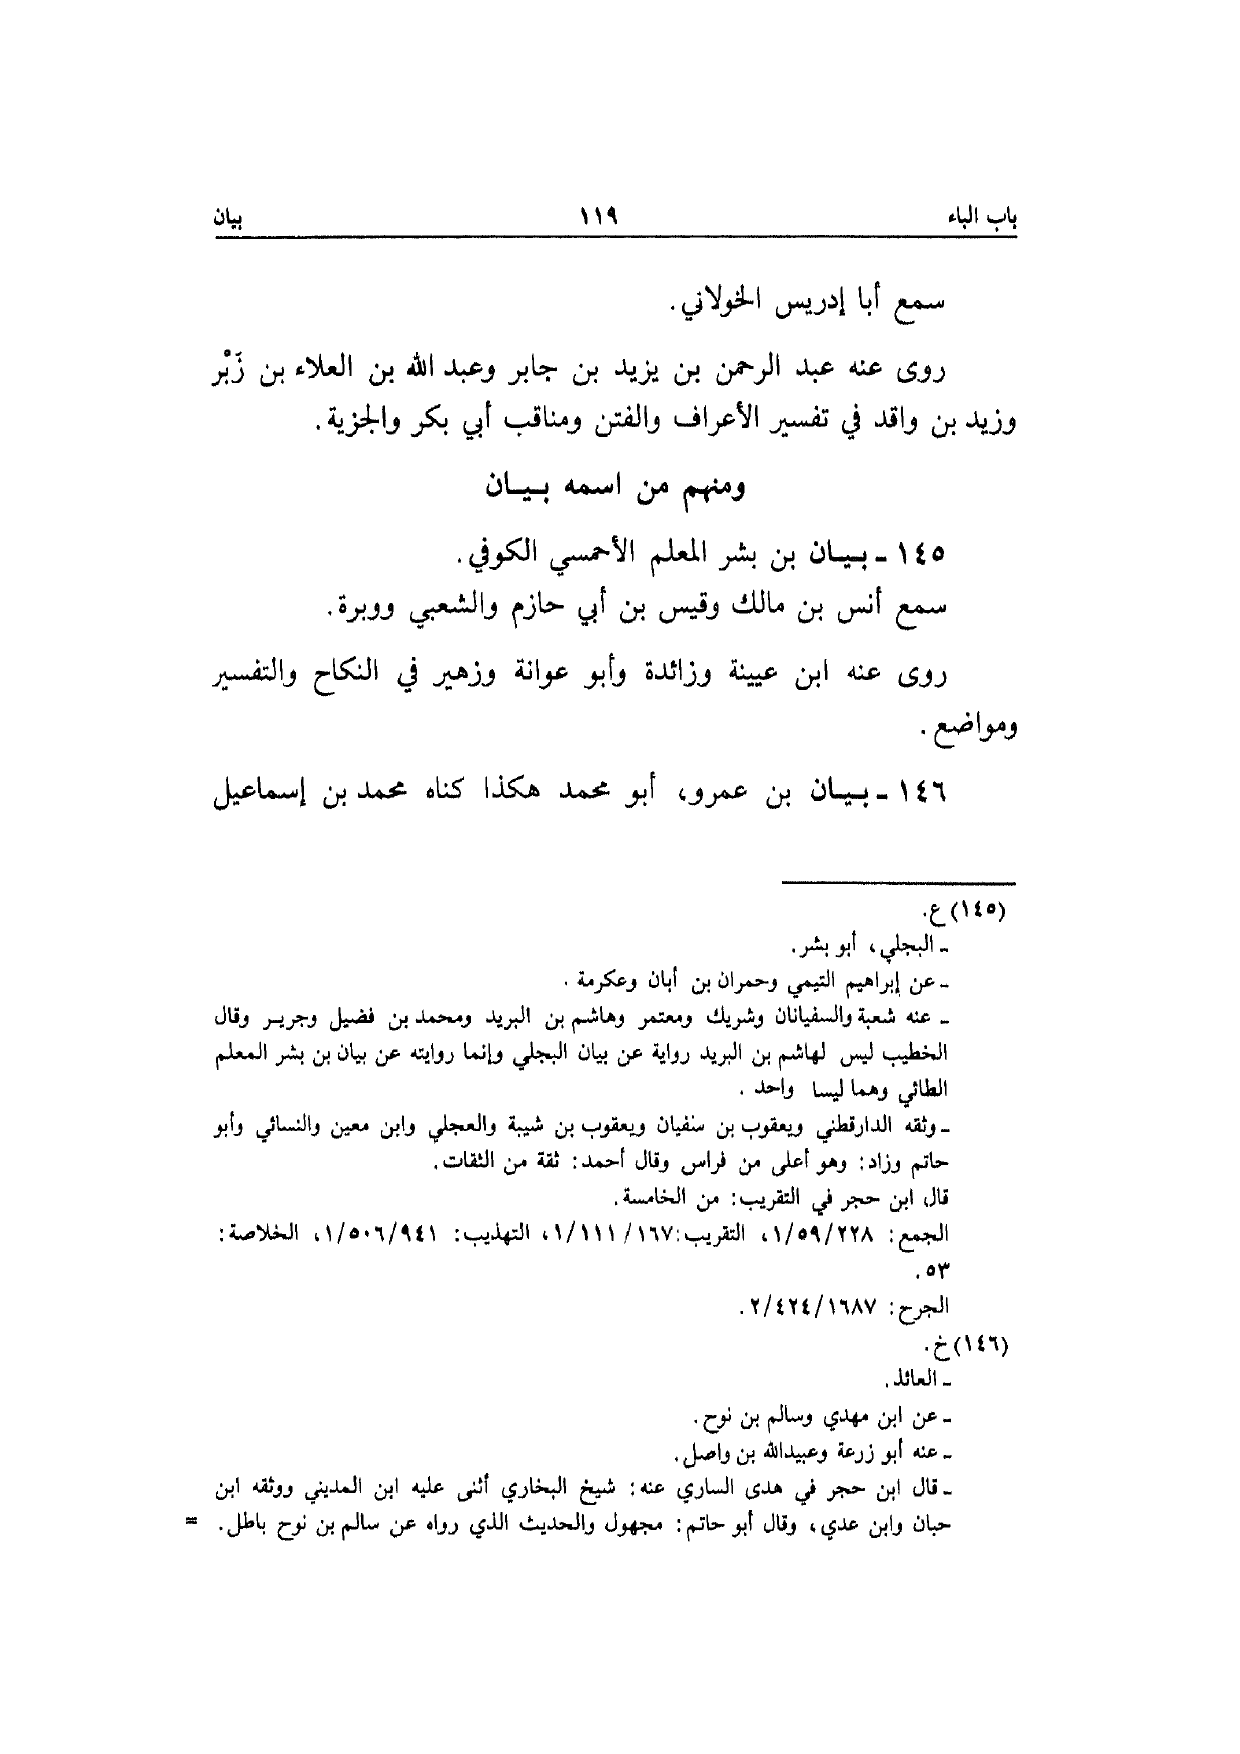 باب الباء ١١٩ بيان
سمع أبا إدريس الخولاني.
روى عنه عبد الرحمن بن يزيد بن جابر وعبد الله بن العلاء بن زَبْر
وزيد بن واقد في تفسير الأعراف والفتن ومناقب أبي بكر والجزية.
ومنهم من اسمه بيان
١٤٥ - بيان بن بشر المعلم الأحمسي الكوفي.
سمع أنس بن مالك وقيس بن أبي حازم والشعبي ووبرة.
روى عنه ابن عيينة وزائدة وأبو عوانة وزهير في النكاح والتفسير
ومواضع.
١٤٦ - بيان بن عمرو، أبو محمد هكذا كناه محمد بن إسماعيل
(١٤٥) ع.
- البجلي، أبو بشر.
- عن إبراهيم التيمي وحمران بن أبان وعكرمة.
- عنه شعبة والسفيانان وشريك ومعتمر وهاشم بن البريد ومحمد بن فضيل وجرير وقال
الخطيب ليس لهاشم بن البريد رواية عن بيان البجلي وإنما روايته عن بيان بن بشر المعلم
الطائي وهما ليسا واحد.
- وثقه الدارقطني ويعقوب بن سنفيان ويعقوب بن شيبة والعجلي وابن معين والنسائي وأبو
حاتم وزاد: وهو أعلى من فراس وقال أحمد: ثقة من الثقات.
قال ابن حجر في التقريب: من الخامسة.
الجمع: ١/٥٩/٢٢٨، التقريب: ١/١١١/١٦٧، التهذيب: ١/٥٠٦/٩٤١، الخلاصة:
٥٣.
الجرح: ٢/٤٢٤/١٦٨٧.
(١٤٦) خ.
- العائذ.
- عن ابن مهدي وسالم بن نوح.
- عنه أبو زرعة وعبيدالله بن واصل.
- قال ابن حجر في هدى الساري عنه: شيخ البخاري أثنى عليه ابن المديني ووثقه ابن
حبان وابن عدي، وقال أبو حاتم: مجهول والحديث الذي رواه عن سالم بن نوح باطل. =